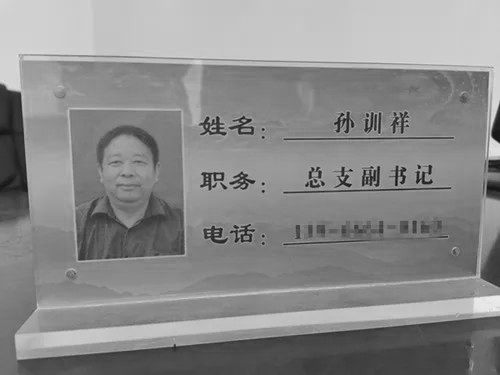 姓名： 孙训祥
职务： 总支副书记
电话：